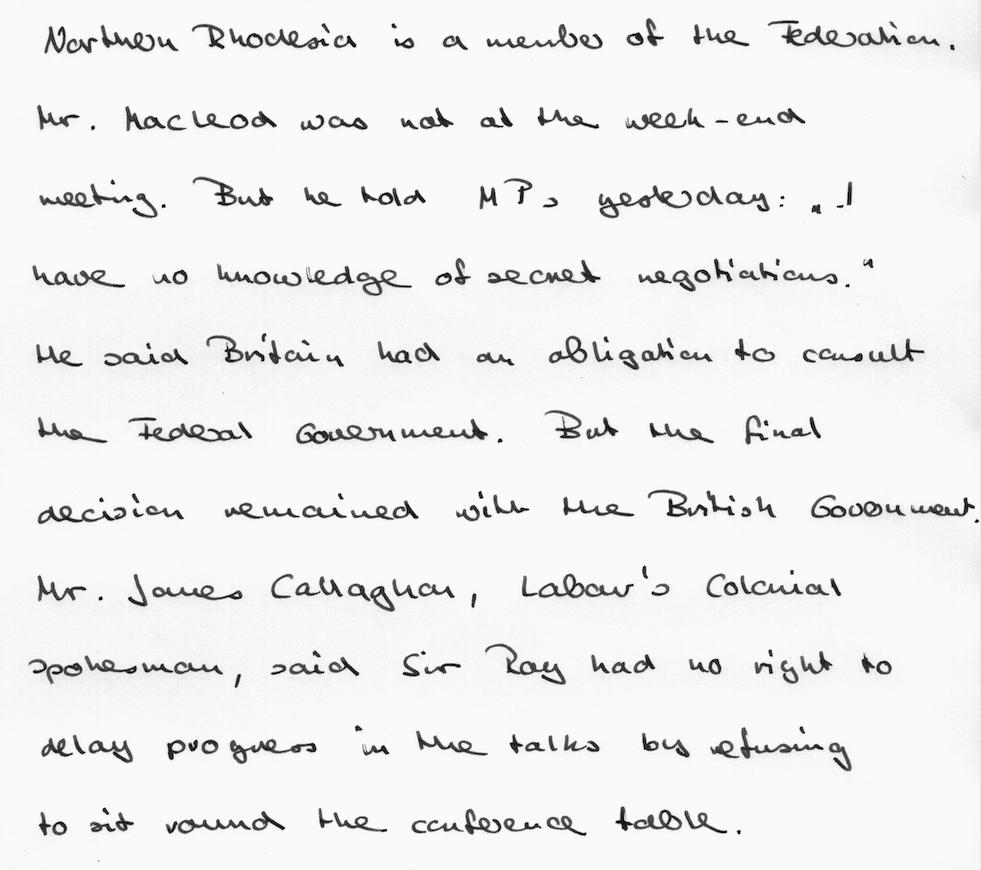 Northern Rhodesia is a member of the Federation.
Mr. Macleod was not at the week-end
meeting. But he told MPs yesterday: „I
have no knowledge of secret negotiations."
He said Britain had an obligation to consult
the Federal Government. But the final
decision remained with the British Government.
Mr. James Callaghan, Labour's Colonial
spokesman, said Sir Roy had no right to
delay progress in the talks by refusing
to sit round the conference table.